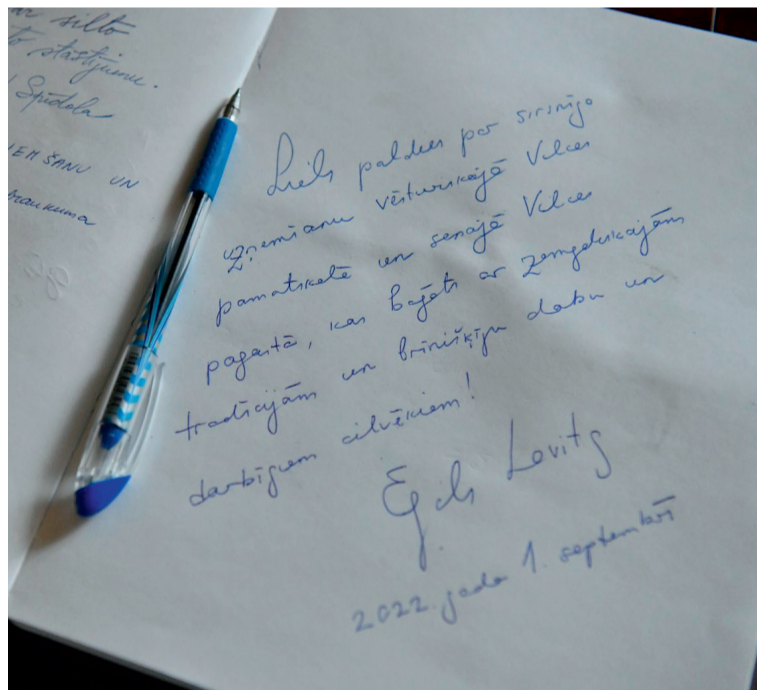 ar silto
to stāstījumu.
Spīdola
IEMŠANU UN
braukuma
Liels paldies par sirsnīgo
uzņemšanu vēsturiskajā Vilces
pamatskolā un senajā Vilces
pagastā, kas bagāts ar zemgaliskajām
tradīcijām un brīnišķīgu dabu un
darbīgiem cilvēkiem!
Egils Levits
2022. gada 1. septembrī